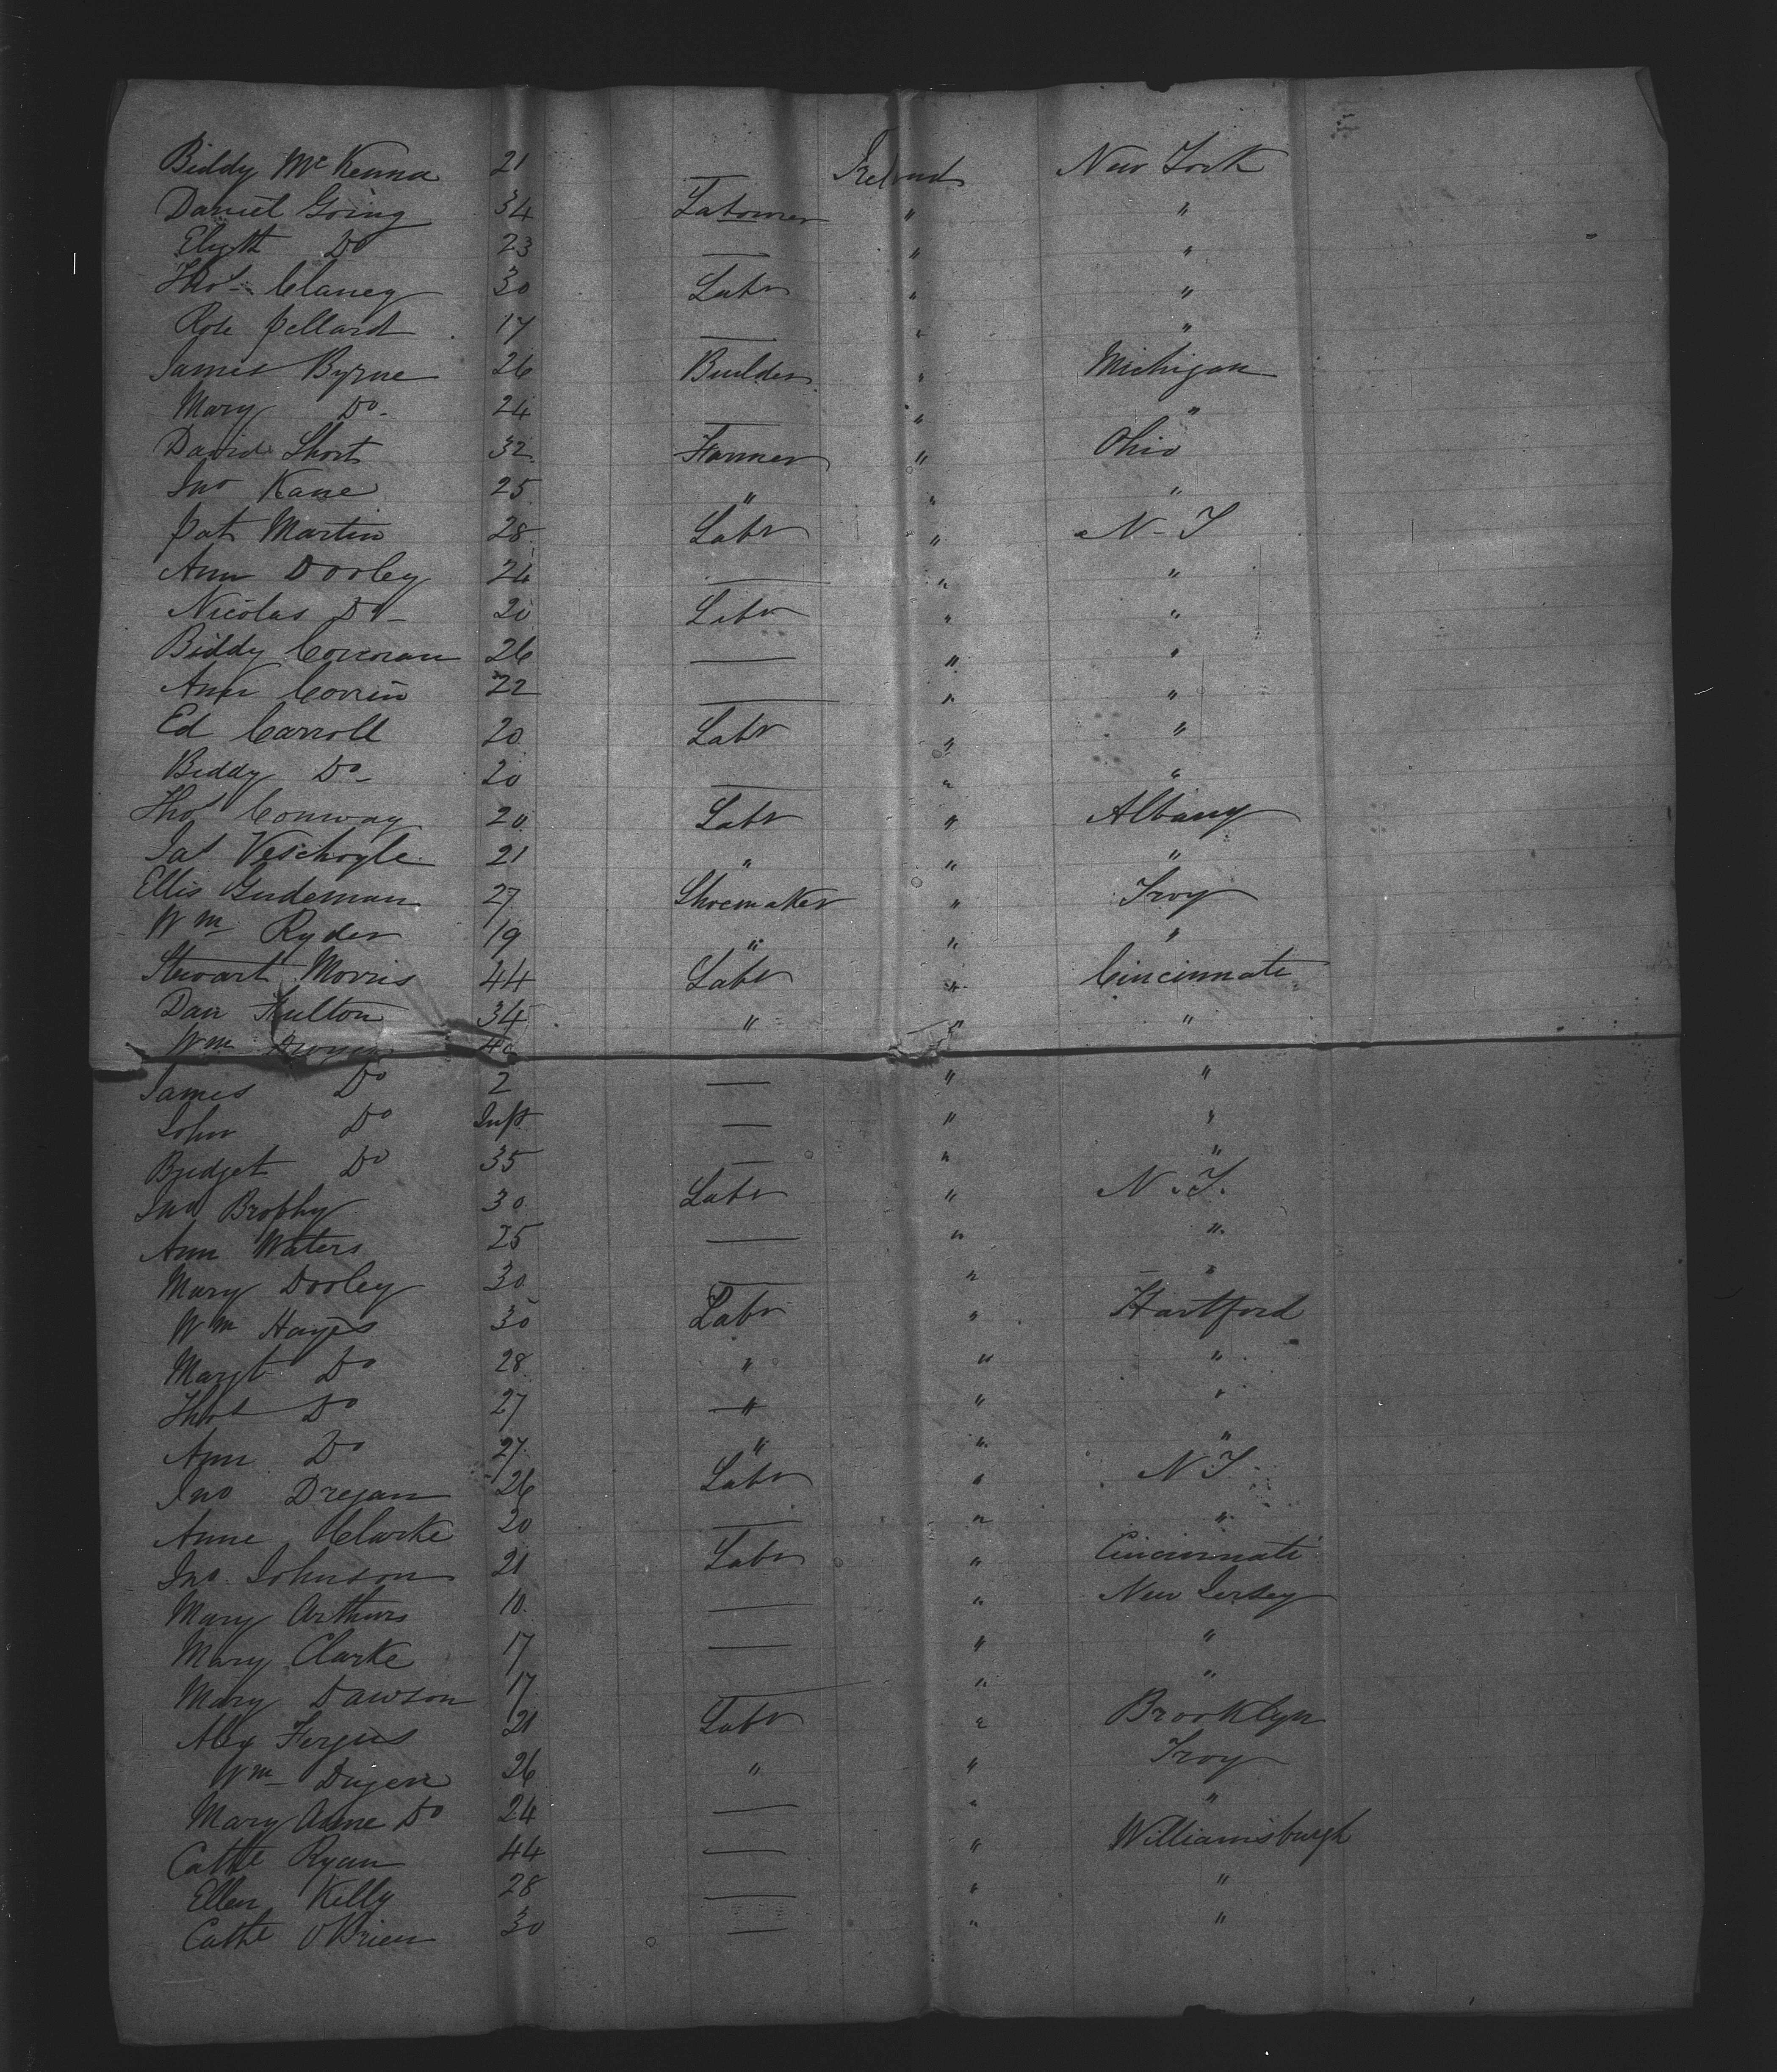 Biddy McKenna 21 — Ireland New York
Daniel Going 34 Labourer " "
Elizth Do 23 — " "
Thos Clancy 30 Labr " "
Rose Pellard 17 — " "
James Byrne 26 Builder " Michigan
Mary Do 24 — " "
David Short 32 Farmer " Ohio
Jno Kane 25 " " "
Pat Martin 28 Labr " N-Y
Ann Dooley 24 — " "
Nicolas Do 20 Labr " "
Biddy Corcoran 26 — " "
Ann Corrin 22 — " "
Ed Carroll 20 Labr " "
Biddy Do 20 — " "
Thos Conway 20 Labr " Albany
Jas 21 " " "
Ellis Gudeman 27 Shoemaker " Troy
Wm Ryder 19 " " "
Stewart Morris 44 Labr " Cincinnati
Dan Fulton 34 " " "
Wm Dwyer 40
James Do 2 — " "
John Do Inft — " "
Bridget Do 35 — " "
Jno Brophy 30 Labr " N.Y.
Ann Waters 25 — " "
Mary Dooley 30 — " "
Wm Hayes 30 Labr " Hartford
Margt Do 28 " " "
Thos Do 27 " " "
Ann Do 27 " " "
Jno Dregan 26 Labr " N Y
Anne Clarke 20 — " "
Jno Johnson 21 Labr " Cincinnati
Mary Arthurs 10 — " New Jersey
Mary Clarke 17 — " "
Mary Dawson 17 — " "
Alex Fergus 21 Labr " Brooklyn
Wm Dugen 26 " " Troy
Mary Anne Do 24 — " "
Cathe Ryan 44 — " Williamsburgh
Ellen Killy 28 — " "
Cathe O'Brien 30 — " "